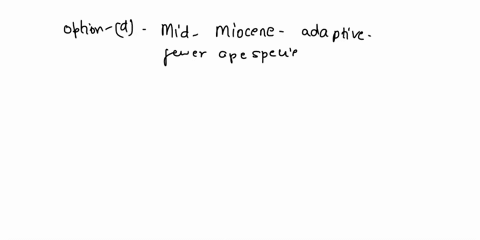 option-(d) - Mid- Miocene- adaptive.
fewer ape specie